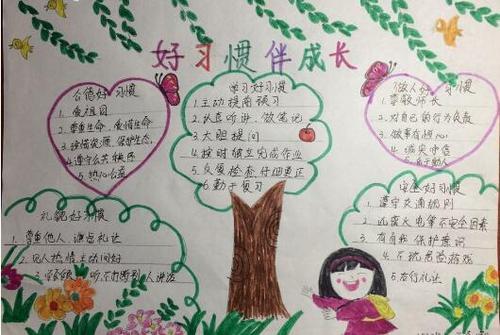 好习惯伴成长
公德好习惯
1. 爱祖国
2. 尊重生命，爱惜生命
3. 珍惜资源，保护生态
4. 遵守公共秩序
5. 热心公益
学习好习惯
1. 主动提前预习
2. 认真听讲，做笔记
3. 大胆提问
4. 按时独立完成作业
5. 反复检查，仔细更正
6. 勤于复习
做人好习惯
1. 尊敬师长
2. 对自己的行为负责
3. 做事有恒心
4. 诚实守信
礼貌好习惯
1. 尊重他人 谦虚礼让
2. 见人热情主动问好
听 不打断别人讲话
安全好习惯
1. 遵守交通规则
2. 远离火电等不安全因素
3. 有自我保护意识
4. 不玩危险游戏
5. 右行礼让